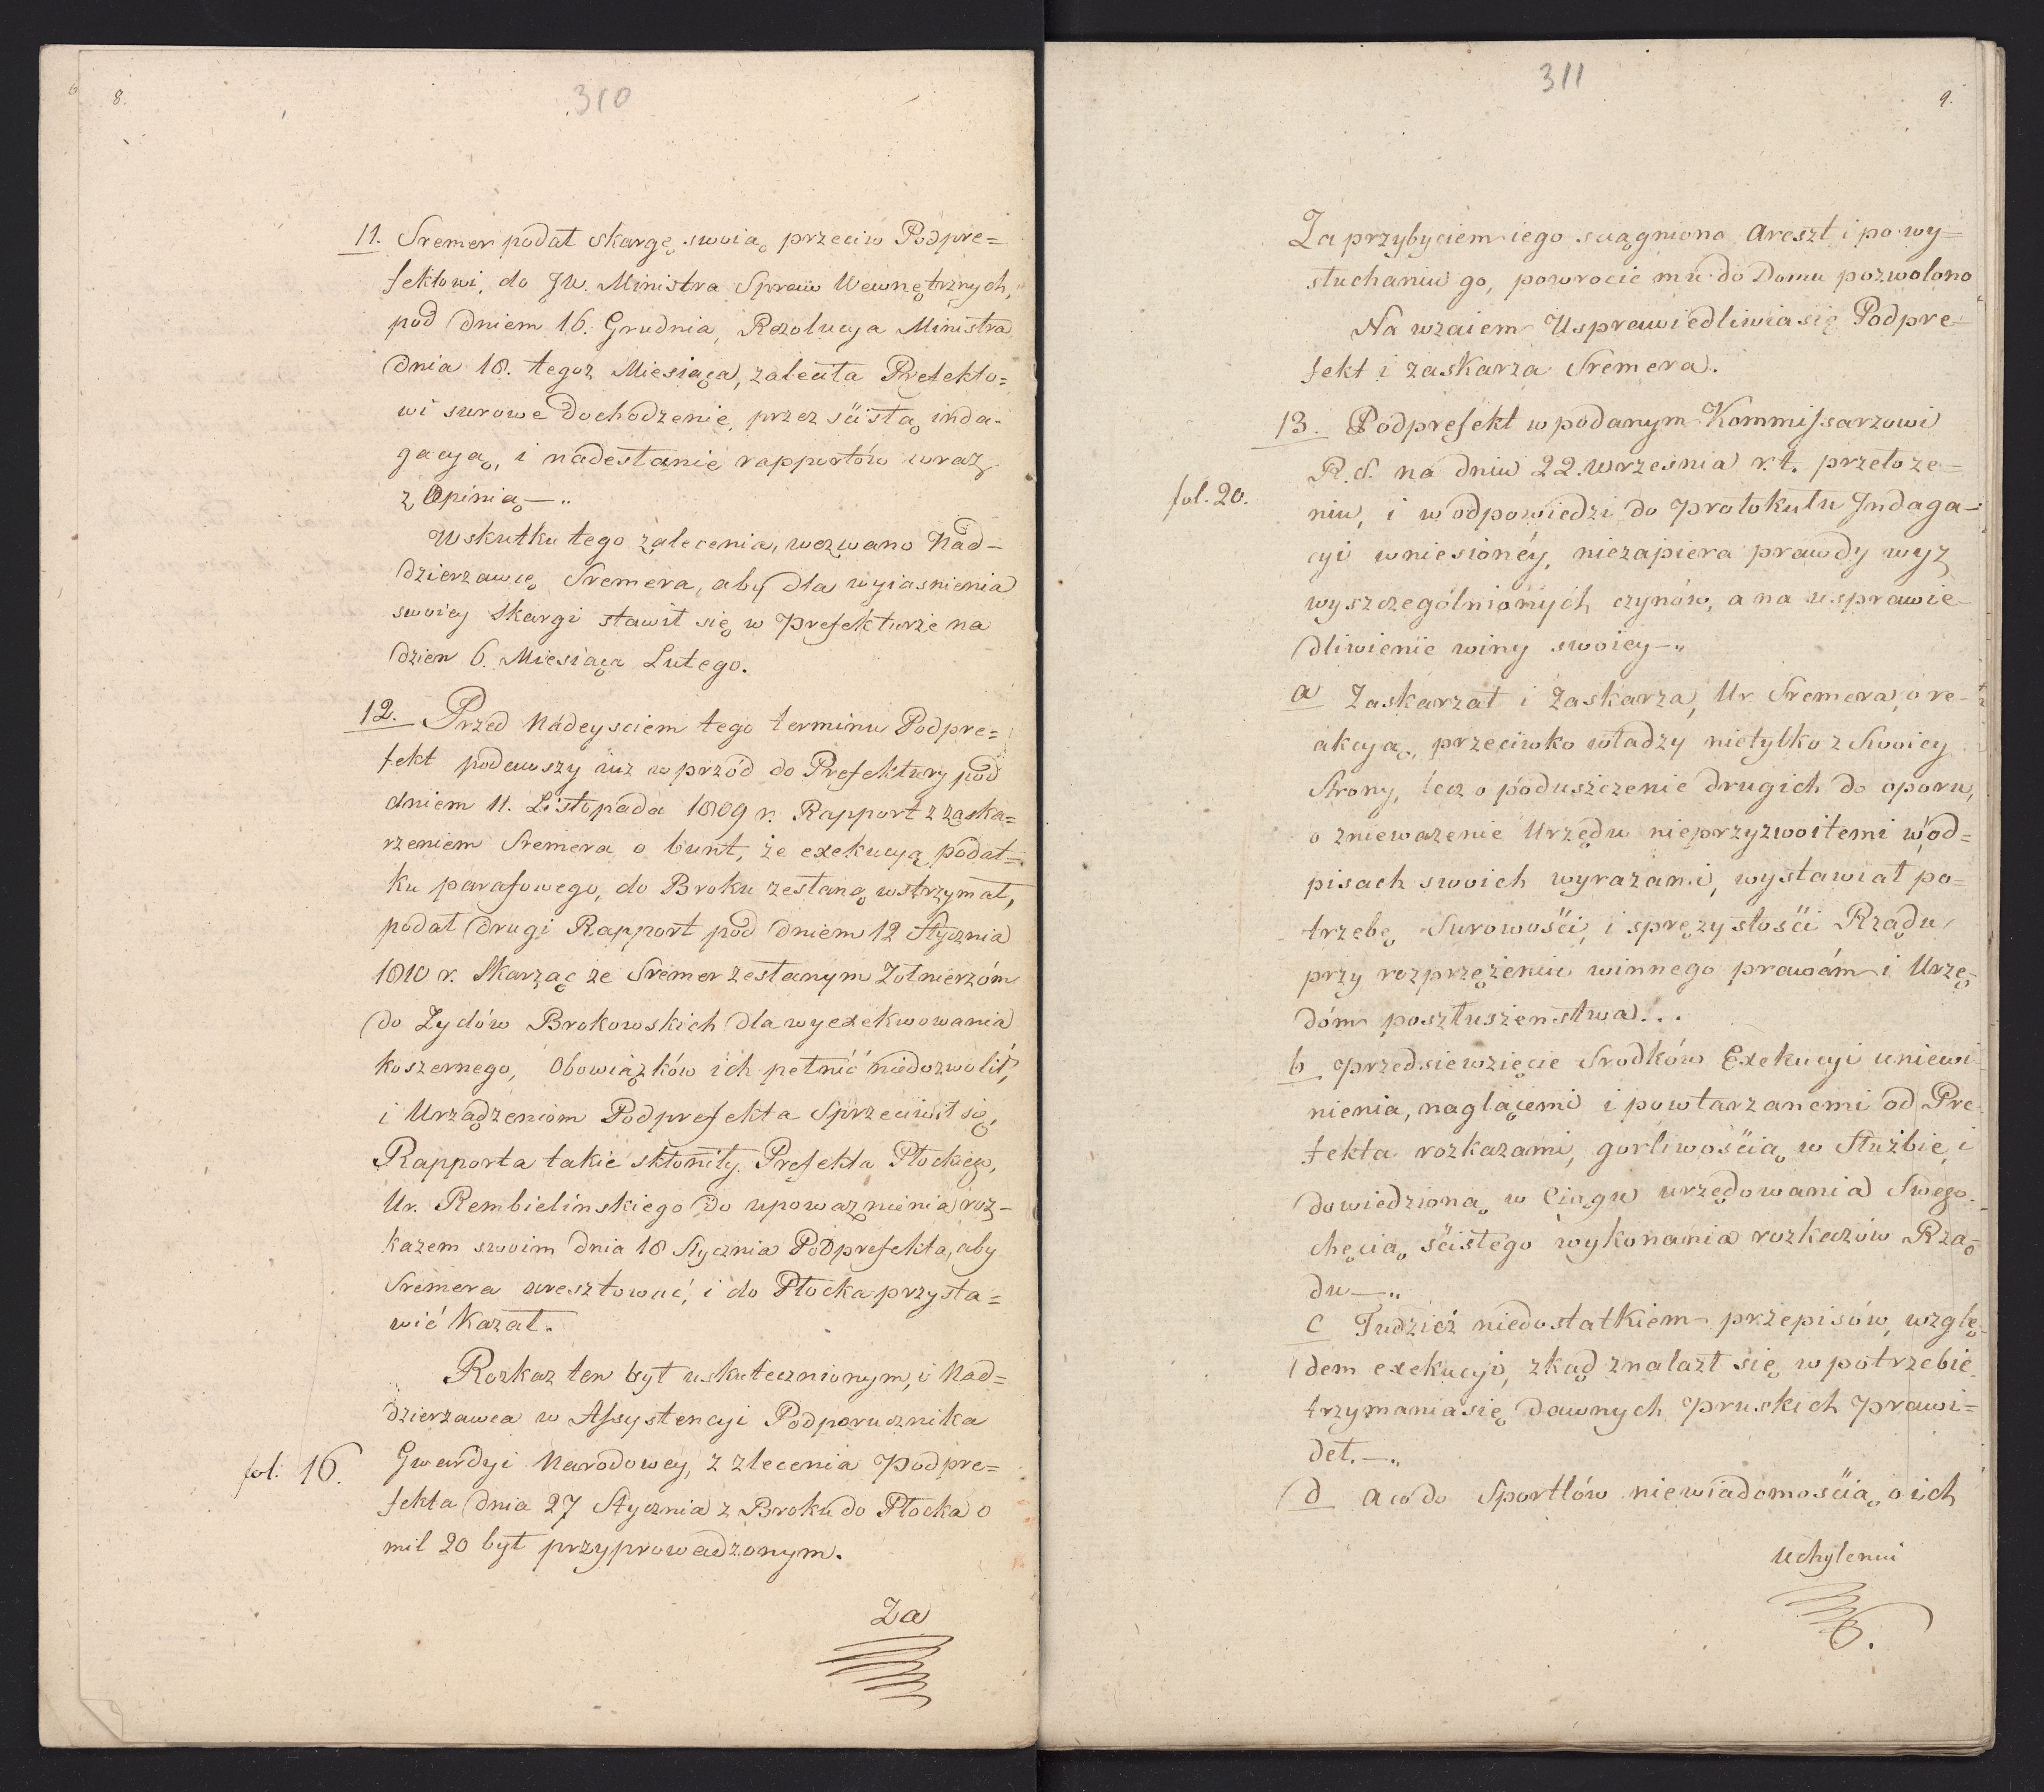 8.
310
11. Sremer podał skargę swoią przeciw Podpre=
fektowi, do JW. Ministra Spraw Wewnętrznych,
pod dniem 16. Grudnia, Rezolucya Ministra
dnia 18. tegoz Miesiąca, zaleciła Prefekto=
wi surowe dochodzenie, przez scisłą inda-
gacyą, i nadesłanie rapportów wraz
z Opinią —„
Wskutku tego zalecenia, wezwano Nad-
dzierzawcę Sremera, aby dla wyiasnienia
swoiey Skargi stawił się w Prefekturze na
dzien 6. Miesiąca Lutego.
12. Przed Nadeysciem tego terminu Podpre=
fekt podawszy iuz wprzód do Prefektury pod
dniem 11. Listopada 1809 r. Rapport z zaska=
rzeniem Sremera o bunt, że exekucyą podat=
ku parafowego, do Broku zesłaną wstrzymał,
podał drugi Rapport pod dniem 12 Stycznia
1810 r. Skarząc ze Sremer zesłanym Zołnierzóm
do Zydów Brokowskich dla wyexekwowania
koszernego, Obowiązków ich pełnić niedozwolił,
i Urządzeniom Podprefekta Sprzeciwił się,
Rapporta takie skłoniły Prefekta Płockiego,
Ur. Rembielinskiego do upowaznienia roz-
kazem swoim dnia 18 Stycznia Podprefekta, aby
Sremera aresztować, i do Płocka przysta=
wić Kazał.
Rozkaz ten był uskutecznionym, i Nad=
dzierzawca w Assystencyi Podporucznika
fol: 16. Gwardyi Narodowey, z zlecenia Podpre=
fekta dnia 27 Stycznia z Broku do Płocka o
mil 20 był przyprowadzonym.
Za
311
9.
Za przybyciem iego sciągniono Areszt i po wy=
słuchaniu go, powrocic mu do Domu pozwolono
Na wzaiem Usprawiedliwia się Podpre-
fekt i zaskarza Sremera.
13. Podprefekt w podanym Kommissarzowi
R. S. na dniu 22. wrzesnia r. t. przełoze=
fol. 20. niu, i w odpowiedzi do Protokułu Indaga-
cyi wniesionéy, niezapiera prawdy wyz
wyszczególnionych czynów, a na usprawie-
dliwienie winy swoiey —„
a Zaskarzał i Zaskarza, Ur. Sremera, o re-
akcyą, przeciwko władzy nietylko z Swoiey
Strony, lecz o poduszczenie drugich do oporu,
o zniewazenie Urzędu nieprzyzwoitemi w od=
pisach swoich wyrazami, wystawiał po=
trzebę Surowości, i sprężystości Rządu,
przy rozprzężeniu winnego prawóm i Urzę-
dóm poszłuszenstwa...
b przedsiewzięcie Srodków Exekucyi uniewi
nienia, naglącemi i powtarzanemi od Pre-
fekta rozkazami, gorliwością w Służbie, i
dowiedzioną w Ciągu urzędowania Swego
chęcią ścisłego wykonania rozkazów Rzą-
du —„
c Tudzież niedostatkiem przepisów, wzglę-
dem exekucyi, zkąd znalazł się w potrzebie
trzymania się dawnych Pruskich Prawi=
deł. —„
d a co do Sportlów niewiadomością o ich
Uchyleniu